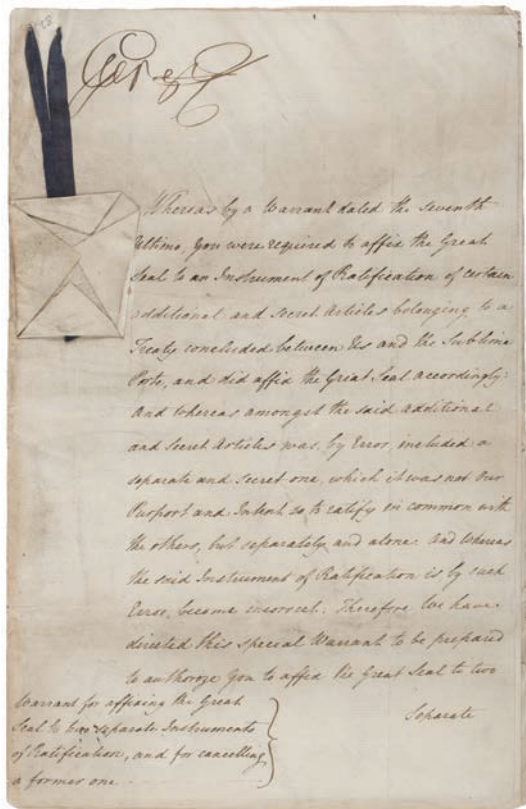 George R
Whereas by a Warrant dated the seventh
Ultimo, You were required to affix the Great
Seal to an Instrument of Ratification of certain
additional and secret Articles belonging to a
Treaty concluded between Us and the Sublime
Porte, and did affix the Great Seal accordingly:
And whereas amongst the said additional
and secret Articles was, by Error, included a
separate and secret one, which it was not Our
Purport and Intent so to ratify in common with
the others, but separately and alone. And whereas
the said Instrument of Ratification is by such
Error, become incorrect: Therefore We have
directed this special Warrant to be prepared
to authorize You to affix the Great Seal to two
Separate
Warrant for affixing the Great
Seal to two separate Instruments
of Ratification, and for cancelling
a former one